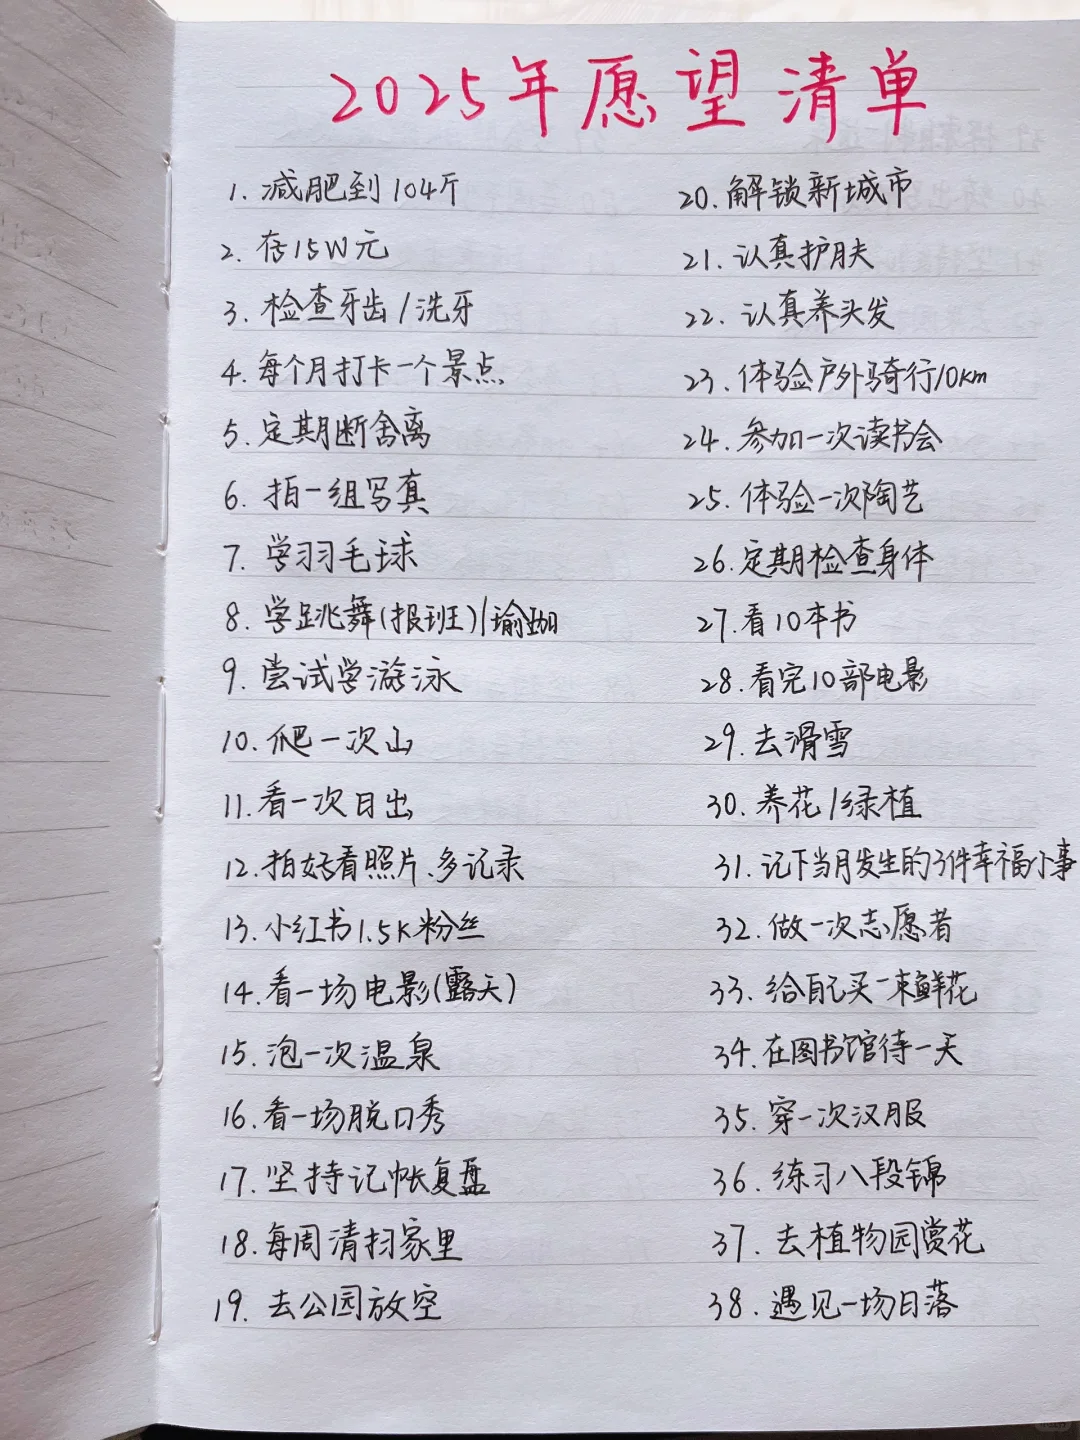 2025年愿望清单
1. 减肥到104斤
2. 存15W元
3. 检查牙齿/洗牙
4. 每个月打卡一个景点
5. 定期断舍离
6. 拍一组写真
7. 学习羽毛球
8. 学跳舞(报班)/瑜珈
9. 尝试学游泳
10. 爬一次山
11. 看一次日出
12. 拍好看照片、多记录
13. 小红书1.5K粉丝
14. 看一场电影(露天)
15. 泡一次温泉
16. 看一场脱口秀
17. 坚持记帐复盘
18. 每周清扫家里
19. 去公园放空
20. 解锁新城市
21. 认真护肤
22. 认真养头发
23. 体验户外骑行10km
24. 参加一次读书会
25. 体验一次陶艺
26. 定期检查身体
27. 看10本书
28. 看完10部电影
29. 去滑雪
30. 养花/绿植
31. 记下当月发生的3件幸福小事
32. 做一次志愿者
33. 给自己买一束鲜花
34. 在图书馆待一天
35. 穿一次汉服
36. 练习八段锦
37. 去植物园赏花
38. 遇见一场日落